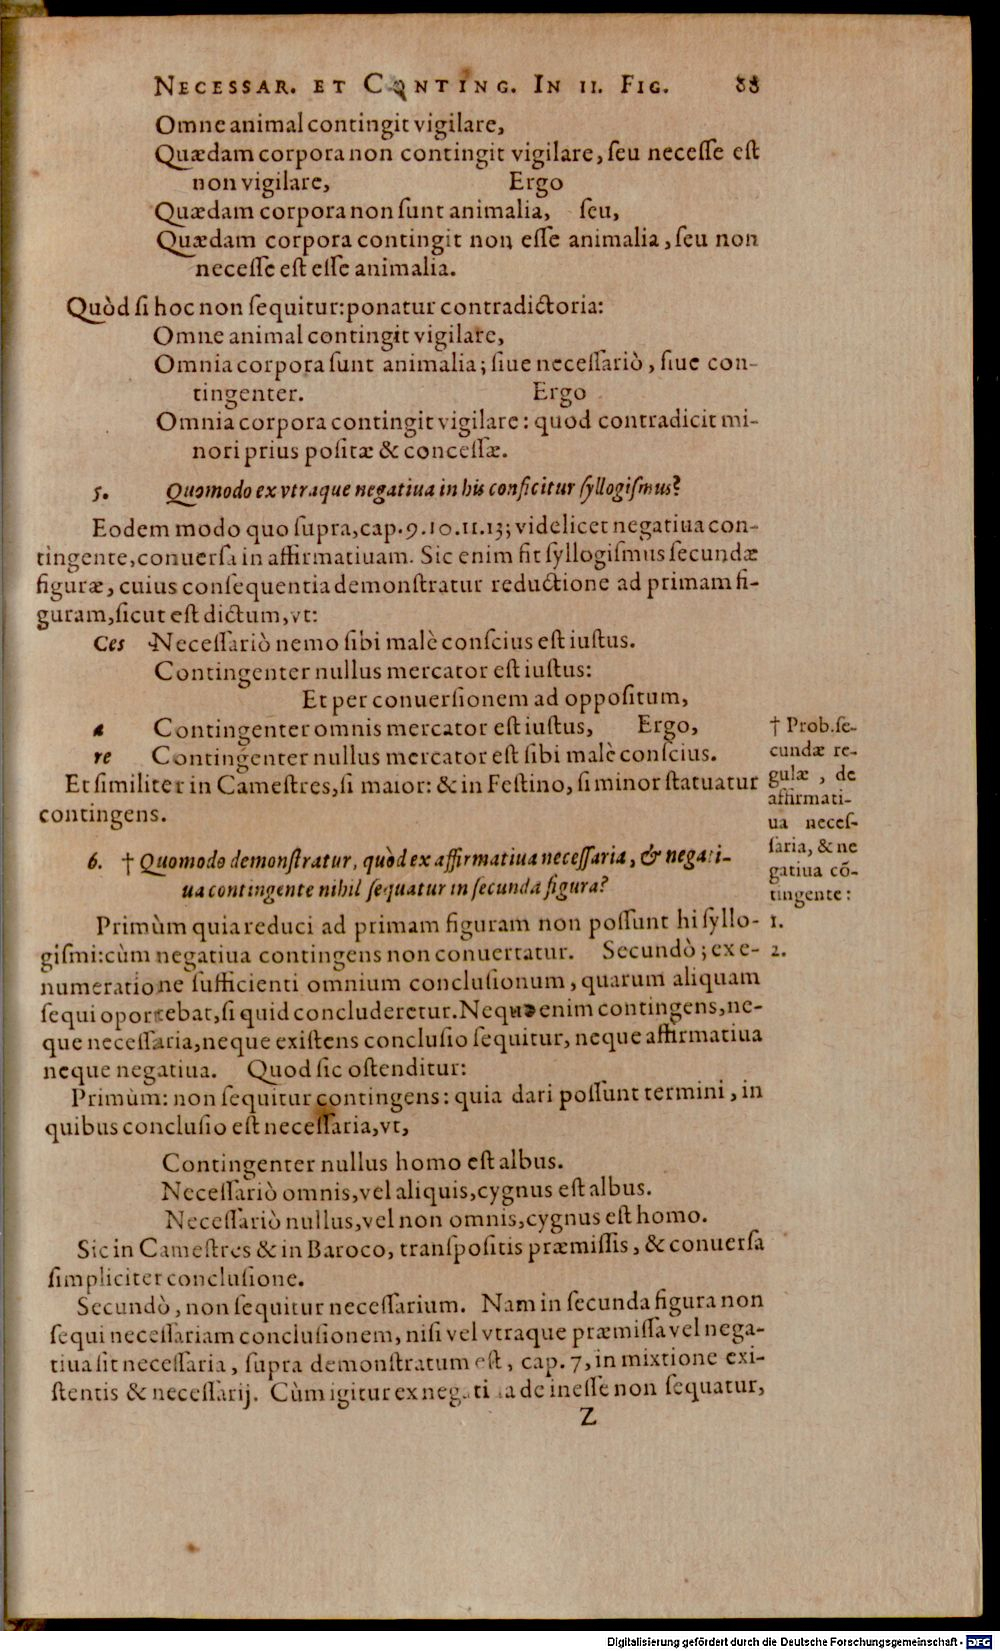 NECESSAR. ET CONTING. IN II. FIG. 88
Omne animal contingit vigilare,
Quædam corpora non contingit vigilare, ſeu neceſſe eſt
non vigilare, Ergo
Quædam corpora non ſunt animalia, ſeu,
Quædam corpora contingit non eſſe animalia, ſeu non
neceſſe eſt eſſe animalia.
Quòd ſi hoc non ſequitur: ponatur contradictoria:
Omne animal contingit vigilare,
Omnia corpora ſunt animalia; ſiue neceſſariò, ſiue con-
tingenter. Ergo
Omnia corpora contingit vigilare: quod contradicit mi-
nori prius poſitæ & conceſſæ.
5. Quomodo ex vtraque negatiua in his conficitur ſyllogiſmus?
Eodem modo quo ſupra, cap. 9. 10. 11. 13; videlicet negatiua con-
tingente, conuerſa in affirmatiuam. Sic enim fit ſyllogiſmus ſecundæ
figuræ, cuius conſequentia demonſtratur reductione ad primam fi-
guram, ſicut eſt dictum, vt:
Ces Neceſſariò nemo ſibi malè conſcius eſt iuſtus.
Contingenter nullus mercator eſt iuſtus:
Et per conuerſionem ad oppoſitum,
a Contingenter omnis mercator eſt iuſtus, Ergo,
re Contingenter nullus mercator eſt ſibi malè conſcius.
Et ſimiliter in Cameſtres, ſi maior: & in Feſtino, ſi minor ſtatuatur
contingens.
† Prob. ſe-
cundæ re-
gulæ, de
affirmati-
ua neceſ-
ſaria, & ne
gatiua cō-
tingente:
6. † Quomodo demonſtratur, quòd ex affirmatiua neceſſaria, & negati-
ua contingente nihil ſequatur in ſecunda figura?
Primùm quia reduci ad primam figuram non poſſunt hi ſyllo- 1.
giſmi: cùm negatiua contingens non conuertatur. Secundò; ex e- 2.
numeratione ſufficienti omnium concluſionum, quarum aliquam
ſequi oportebat, ſi quid concluderetur. Neque enim contingens, ne-
que neceſſaria, neque exiſtens concluſio ſequitur, neque affirmatiua
neque negatiua. Quod ſic oſtenditur:
Primùm: non ſequitur contingens: quia dari poſſunt termini, in
quibus concluſio eſt neceſſaria, vt,
Contingenter nullus homo eſt albus.
Neceſſariò omnis, vel aliquis, cygnus eſt albus.
Neceſſariò nullus, vel non omnis, cygnus eſt homo.
Sic in Cameſtres & in Baroco, tranſpoſitis præmiſſis, & conuerſa
ſimpliciter concluſione.
Secundò, non ſequitur neceſſarium. Nam in ſecunda figura non
ſequi neceſſariam concluſionem, niſi vel vtraque præmiſſa vel nega-
tiua ſit neceſſaria, ſupra demonſtratum eſt, cap. 7, in mixtione exi-
ſtentis & neceſſarij. Cùm igitur ex negatiua de ineſſe non ſequatur,
Z
Digitalisierung gefördert durch die Deutsche Forschungsgemeinschaft - DFG